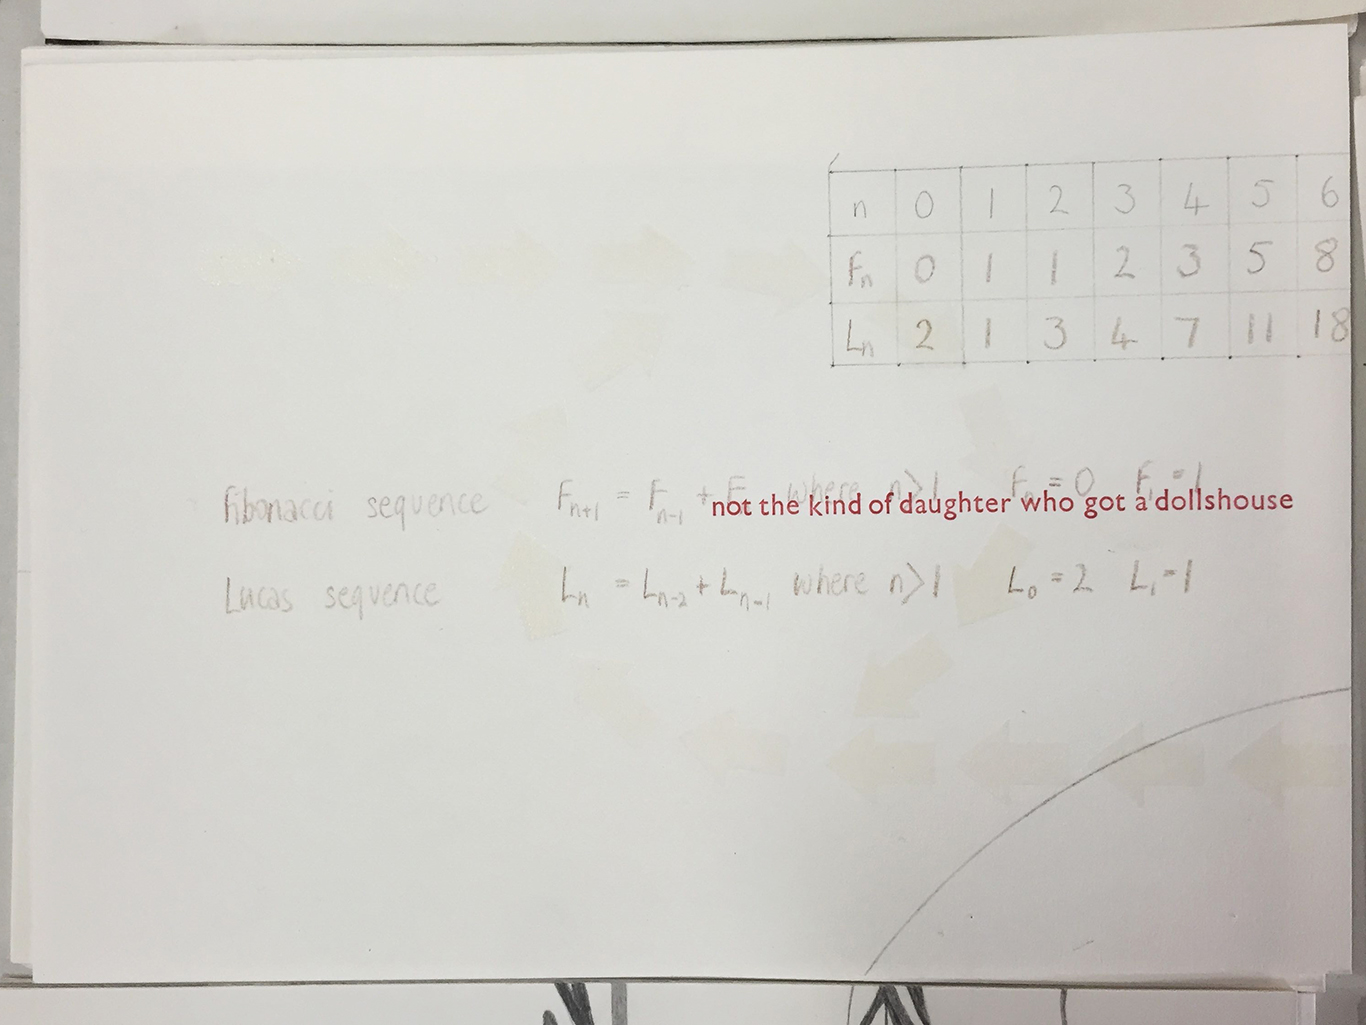 n 0 1 2 3 4 5 6
Fn 0 1 1 2 3 5 8
Ln 2 1 3 4 7 11 18
fibonacci sequence Fn+1 = Fn-1 + F where n>1 F = 0 F1 = 1
not the kind of daughter who got a dollshouse
Lucas sequence Ln = Ln-2 + Ln-1 where n>1 L0 = 2 L1 = 1